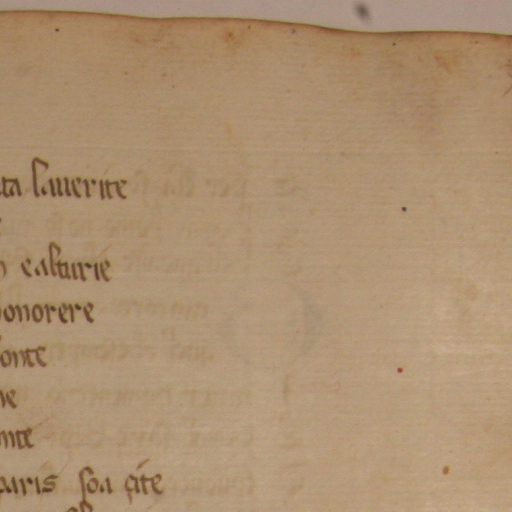 ta lauerite
ealturie
onorere
onte
ne
nte
paris soa çite